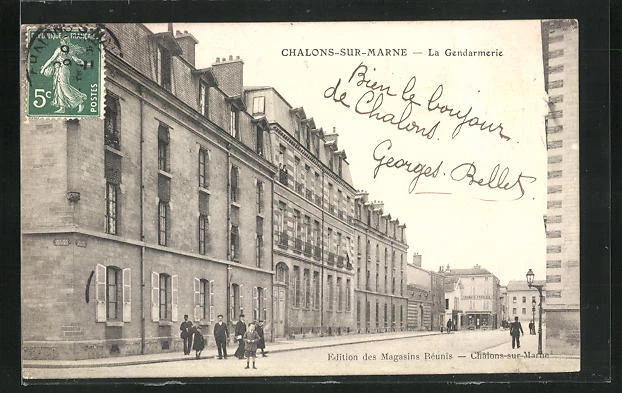 CHALONS-SUR-MARNE — La Gendarmerie
Bien le bonjour
de Chalons.
Georges Bellet
5c POSTES
Edition des Magasins Réunis — Chalons-sur-Marne